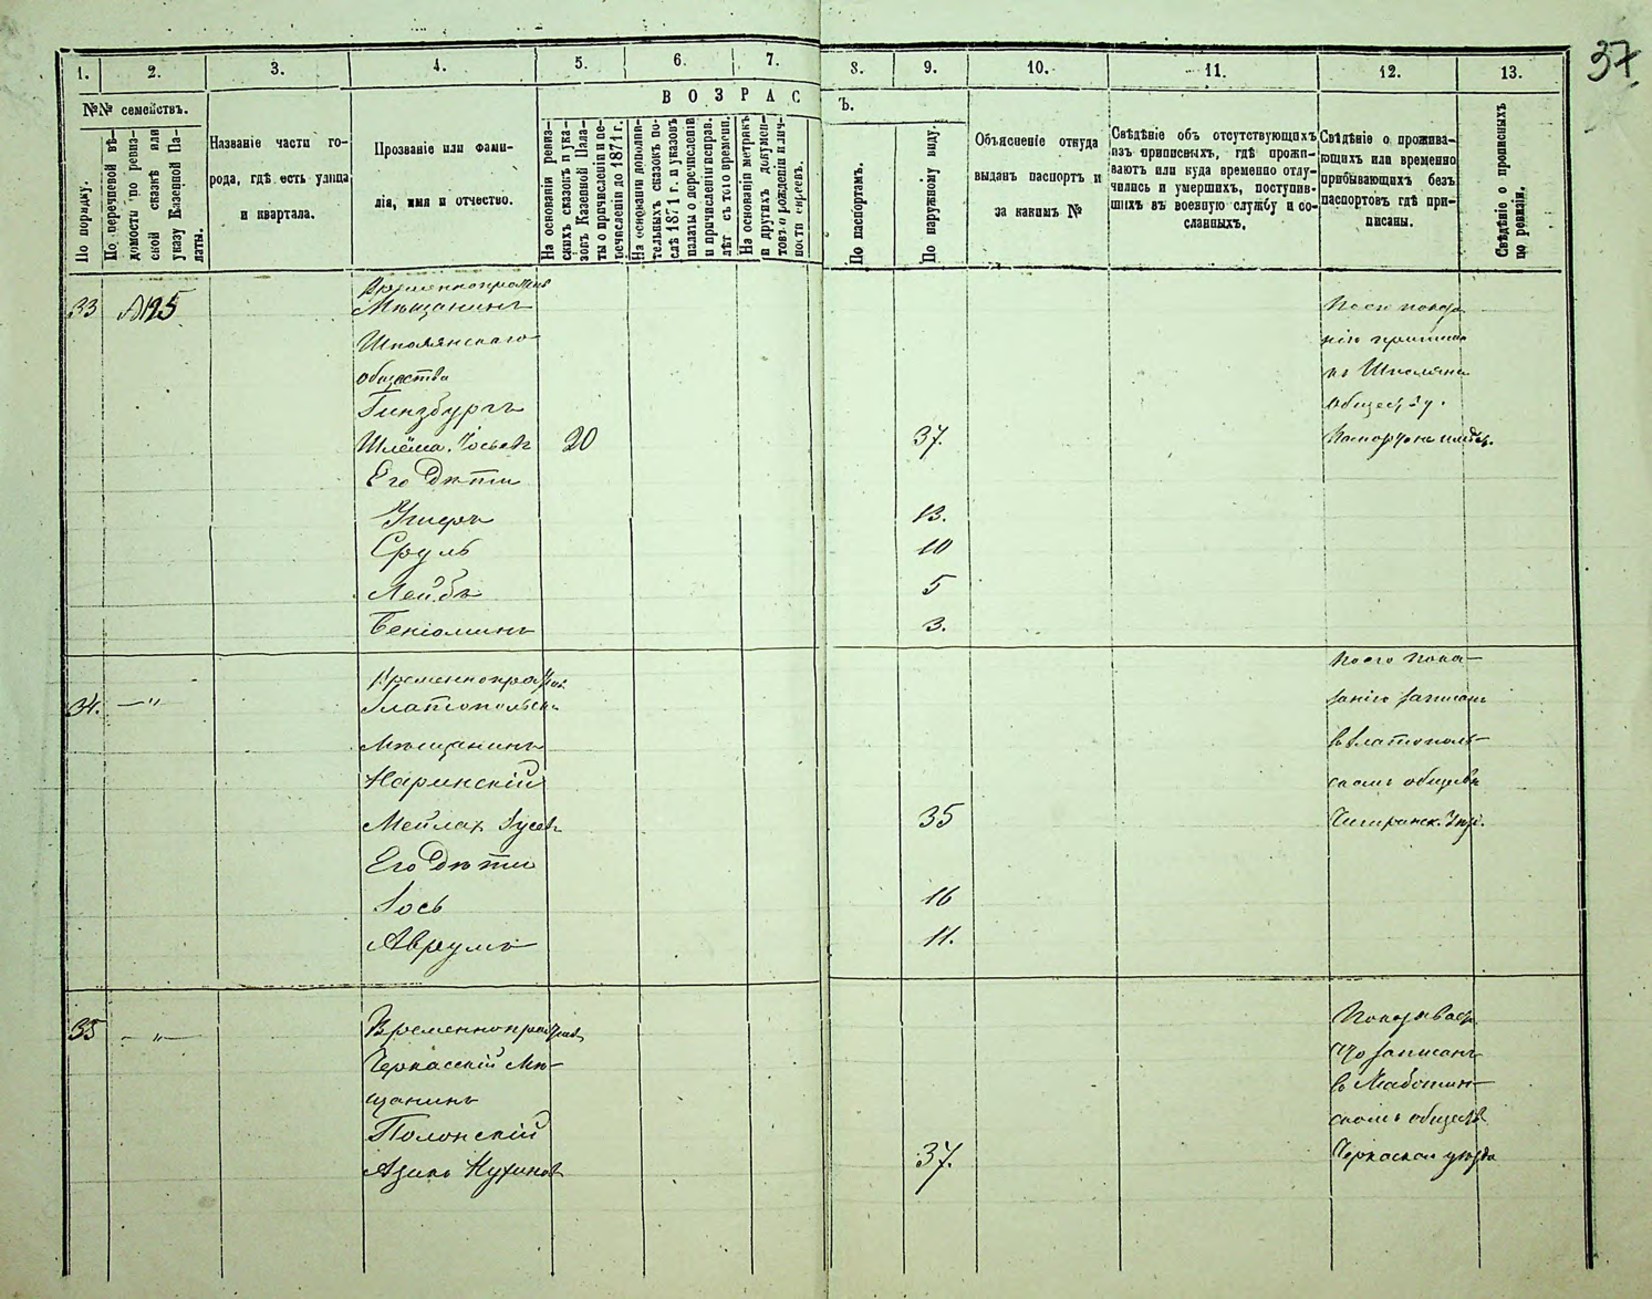 37
1. 2. 3. 4. 5. 6. 7. 8. 9. 10. 11. 12. 13.
№№ семействъ.
По порядку.
По перечневой вѣ-
домости по ревиз-
ской сказкѣ или
указу Казенной Па-
латы.
Названіе части го-
рода, гдѣ есть улица
и квартала.
Прозваніе или фами-
лія, имя и отчество.
ВОЗРАСТЪ.
На основаніи ревиз-
скихъ сказокъ и ука-
зовъ Казенной Пала-
ты о причисленіи и пе-
речисленіи до 1871 г.
На основаніи дополни-
тельныхъ сказокъ по-
слѣ 1871 г. и указовъ
палаты о перечисленіи
и причисленіи исправ.
лѣт съ того времени.
На основаніи метрикъ
и другихъ докумен-
товъ о рожденіи и лич-
ности евреевъ.
По паспортамъ.
По наружному виду.
Объясненіе откуда
выданъ паспортъ и
за какимъ №
Свѣдѣніе объ отсутствующихъ
изъ приписныхъ, гдѣ прожи-
ваютъ или куда временно отлу-
чились и умершихъ, поступив-
шихъ въ военную службу и со-
сланныхъ.
Свѣдѣніе о прожива-
ющихъ или временно
прибывающихъ безъ
паспортовъ гдѣ при-
писаны.
Свѣдѣніе о прописныхъ
по ревизіи.
33 №125
Мѣщанинъ
Шполянскаго
общества
Гинзбургъ
Шлёма Іосьевъ 20 37.
Его Дѣти
Ушеръ 13.
Сруль 10
Лейбъ 5
Беніоминъ 3.
по его показа
нію
къ Шполянс
34. — "
Златопольскі
Мѣщанинъ
Наринскій
Мейлах 35
Его Дѣти
Іось 16
Аврумъ 11.
по его пока-
занію записанъ
въ Златополь-
скомъ общевѣ
Чигиринск. Уѣз.
35 — " —
Черкасскій Мѣ-
щанинъ
Полонскій
37.
Показывает
что записанъ
въ
скомъ обществ
Черкаскаи уѣзда